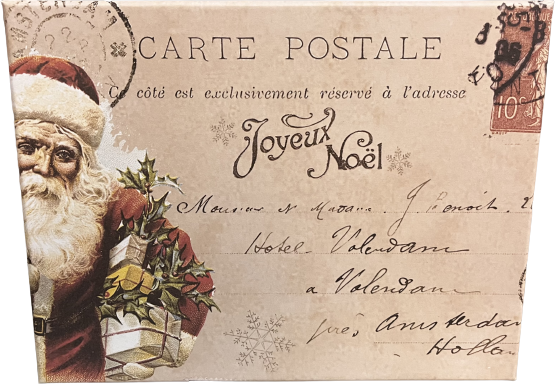 CARTE POSTALE
Ce côté est exclusivement réservé à l'adresse
Joyeux
Noël
Monsieur et Madame J. Benoit
Hotel Volendam
a Volendam
près Amsterdam
Hollan
10c